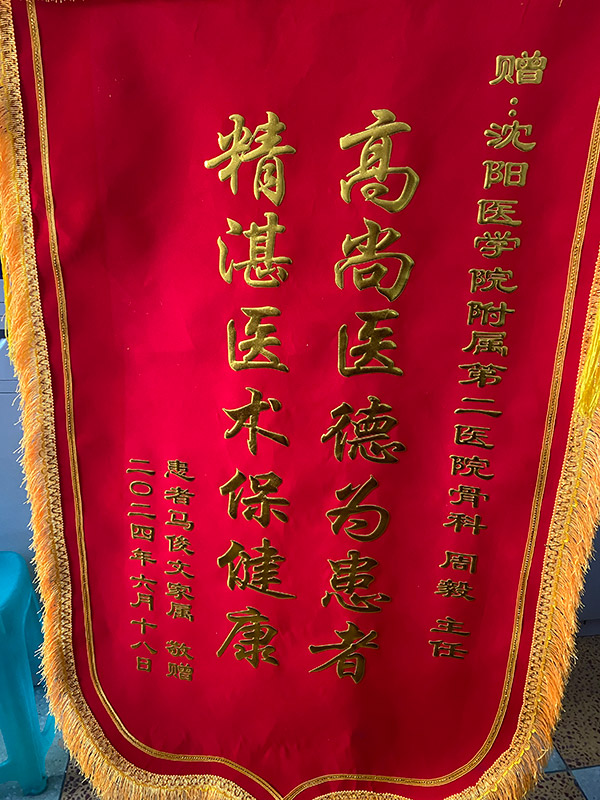 赠:沈阳医学院附属第二医院骨科 周毅 主任
高尚医德为患者
精湛医术保健康
患者马俊文家属 敬赠
二〇二四年六月十八日